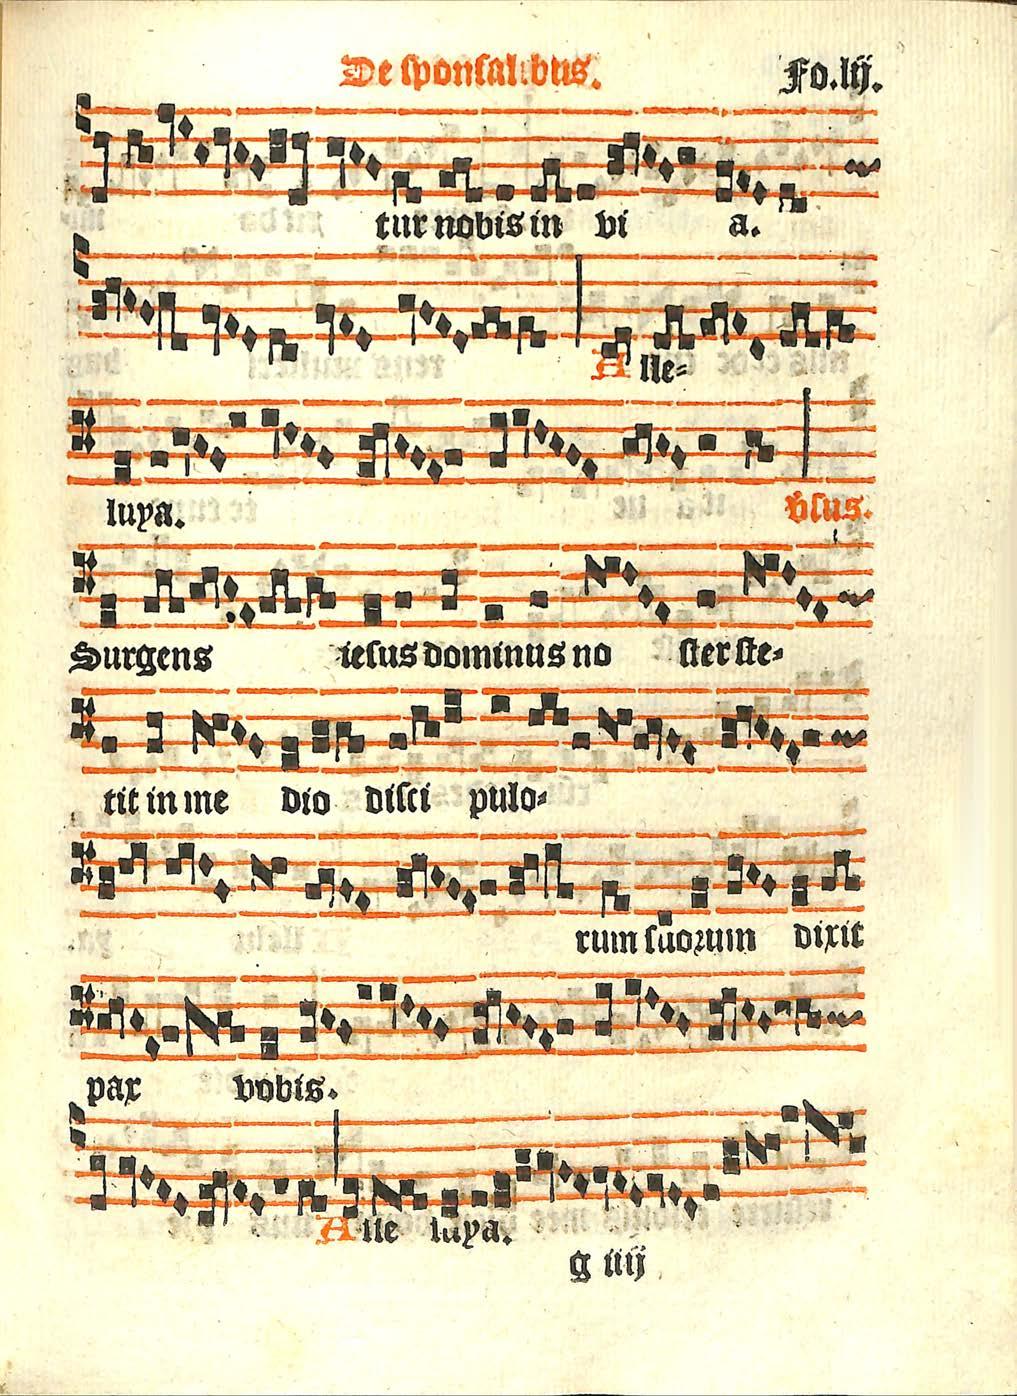 De sponsalibus. Fo.lij.
tur nobis in vi a.
Alle-
luya. Vsus.
Surgens iesus dominus no ster ste-
tit in me dio disci pulo-
rum suorum dixit
pax vobis.
Alle luya.
g iiij